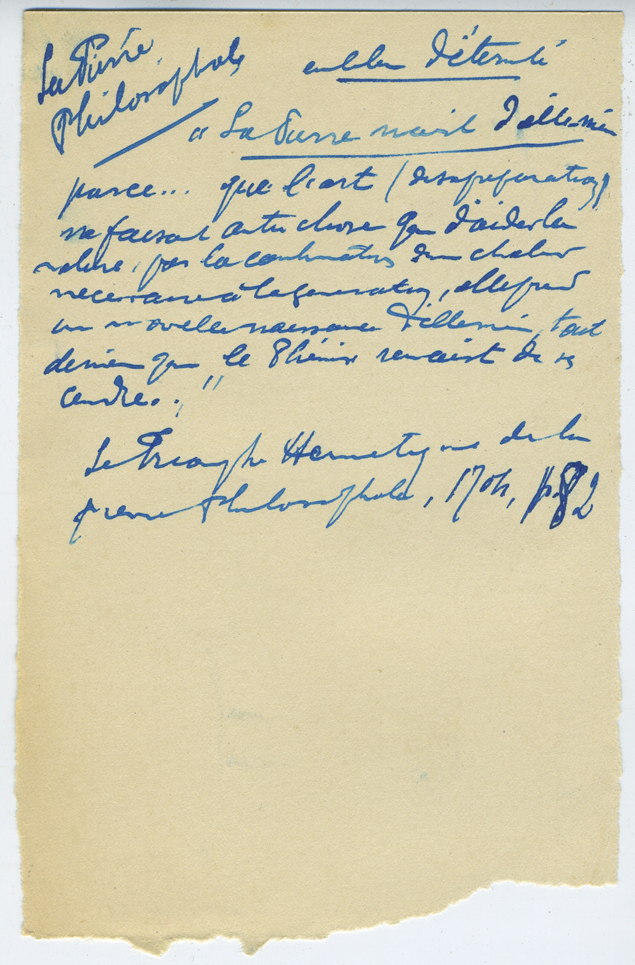 La Pierre
Philosophale
emblème d'éternité
« La Pierre naist d'elle-même
parce... que l'art (dans sa préparation)
ne faisant autre chose que d'aider la
nature, par la continuation d'une chaleur
nécessaire à la génération, elle prend
une nouvelle naissance d'elle-même, tout
de même que le Phénix renaist de ses
cendres. »
Le Triomphe Hermetique de la
pierre Philosophale, 1704, p. 82